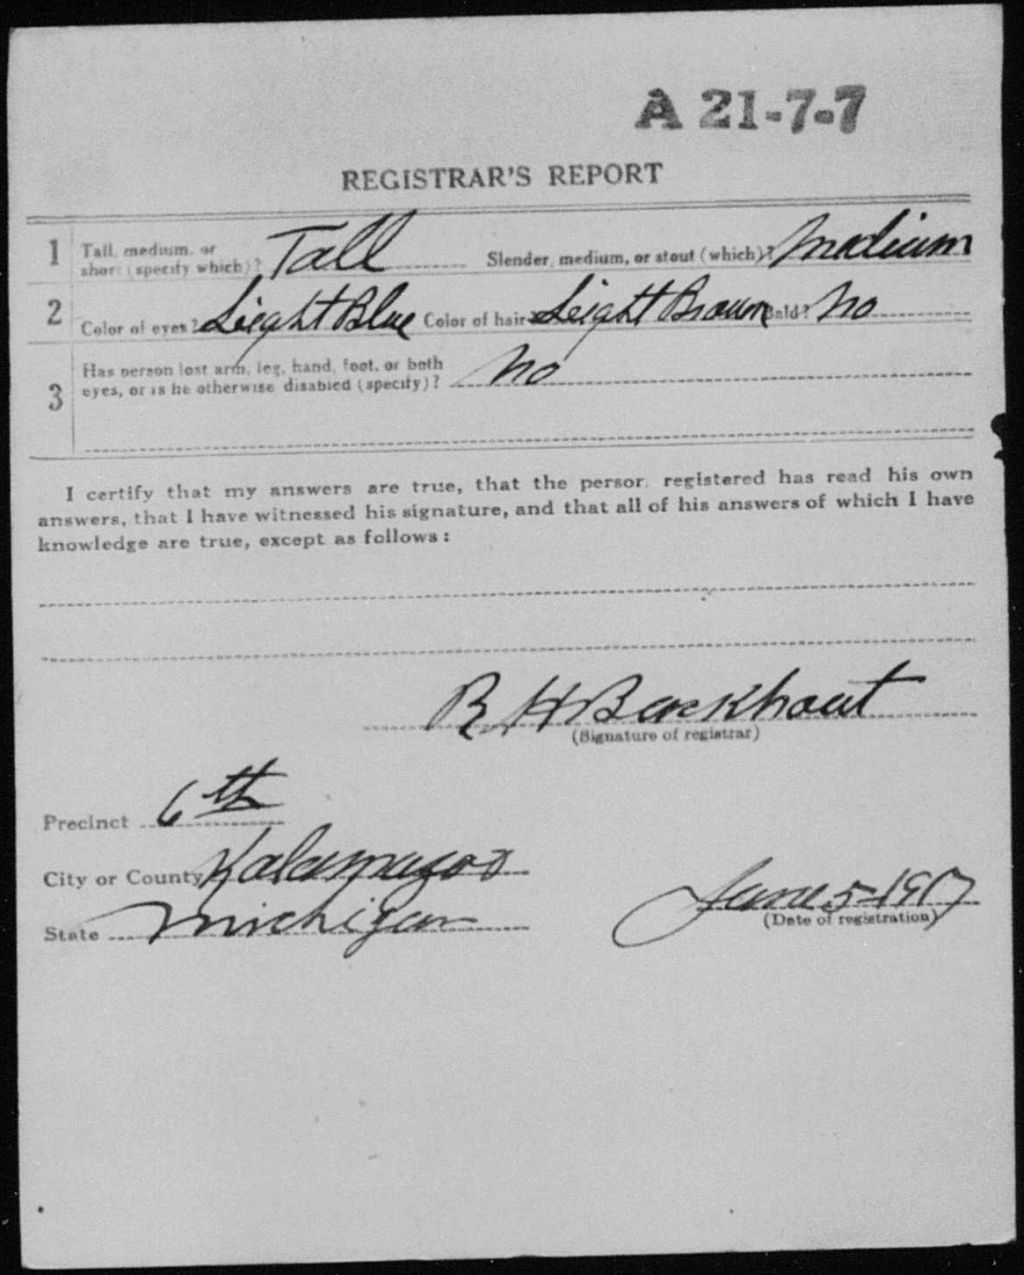 A 21-7-7
REGISTRAR'S REPORT
1 Tall, medium, or short (specify which)? Tall Slender, medium, or stout (which)? Medium
2 Color of eyes? Leight Blue Color of hair Leight Brown Bald? No
3 Has person lost arm, leg, hand, foot, or both
eyes, or is he otherwise disabled (specify)? No
I certify that my answers are true, that the person registered has read his own
answers, that I have witnessed his signature, and that all of his answers of which I have
knowledge are true, except as follows:
R H
(Signature of registrar)
Precinct 6th
City or County Kalamazoo
State Michigan
June 5-1917
(Date of registration)